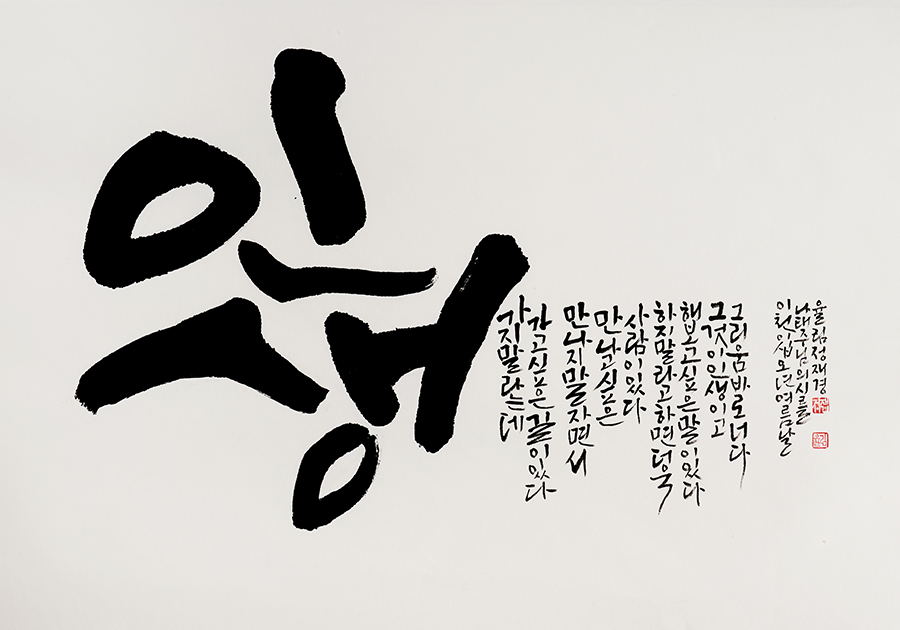 인생
가지말라는데
가고싶은길이있다
만나지말자면서
만나고싶은
사람이있다
하지말라고하면더욱
해보고싶은말이있다
그것이인생이고
그리움바로너다
이천이십오년여름날
나태주님의시를
율림정재경